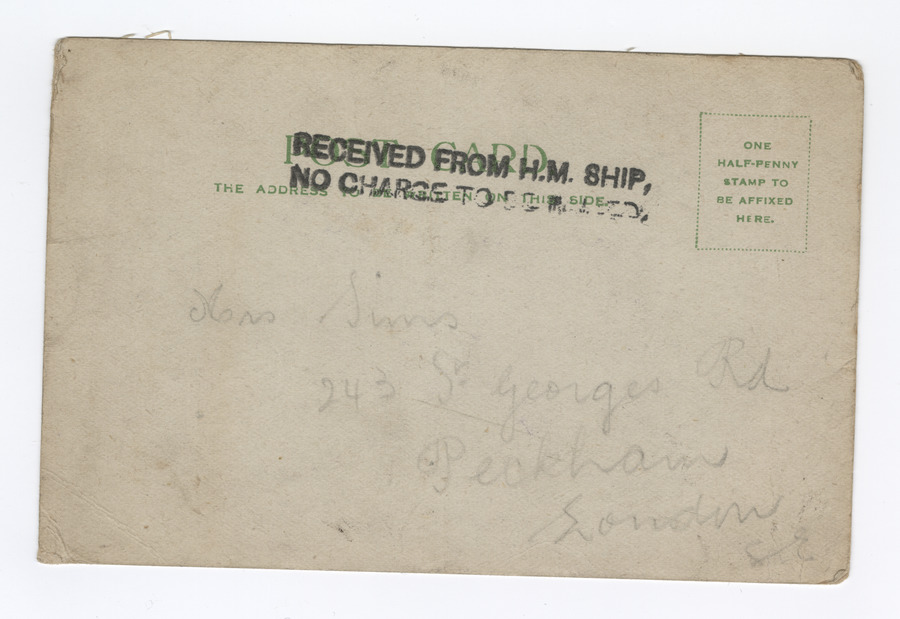 POST CARD
RECEIVED FROM H.M. SHIP,
NO CHARGE TO BE RAISED.
THE ADDRESS TO BE WRITTEN ON THIS SIDE.
ONE
HALF-PENNY
STAMP TO
BE AFFIXED
HERE.
Mrs Sims
243 St Georges Rd
Peckham
London
S E